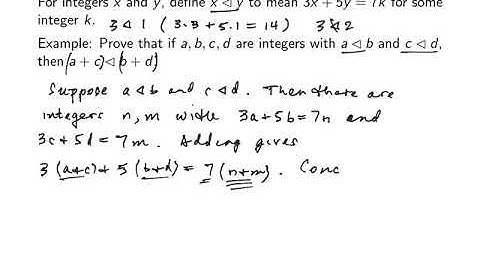 For integers x and y, define x ◁ y to mean 3x + 5y = 7k for some
integer k. 3 ◁ 1 ( 3·3 + 5·1 = 14 ) 3 ⋪ 2
Example: Prove that if a, b, c, d are integers with a ◁ b and c ◁ d,
then (a + c) ◁ (b + d)
Suppose a ◁ b and c ◁ d. Then there are
integers n, m with 3a + 5b = 7n and
3c + 5d = 7m. Adding gives
3 (a+c) + 5 (b+d) = 7 (n+m). Conc